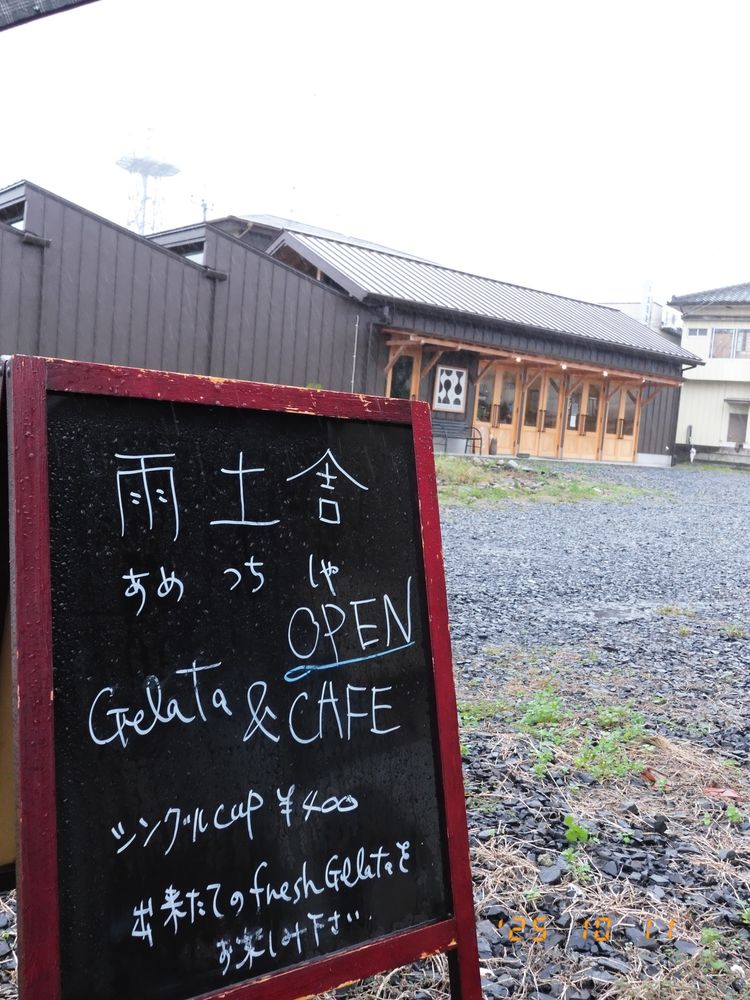 雨土舎
あめつちしゃ
OPEN
Gelata & CAFE
シングルcup ¥400
出来たてのfresh Gelataを
お楽しみ下さい.
'25 10 11